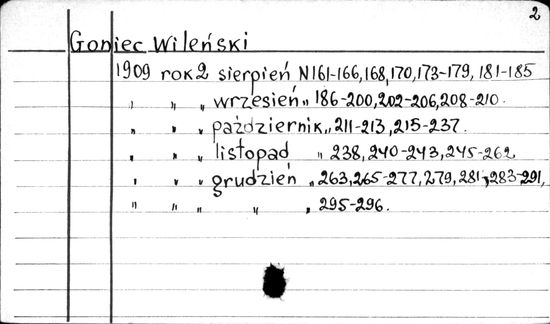 2
Goniec Wileński
1909 rok 2 sierpień N161-166,168,170,173-179, 181-185
" " " wrzesień " 186-200,202-206,208-210.
" " " październik " 211-213,215-237.
" " " listopad " 238,240-243,245-262
" " " grudzień " 263,265-277,279,281,283-291,
" " " " " 295-296.